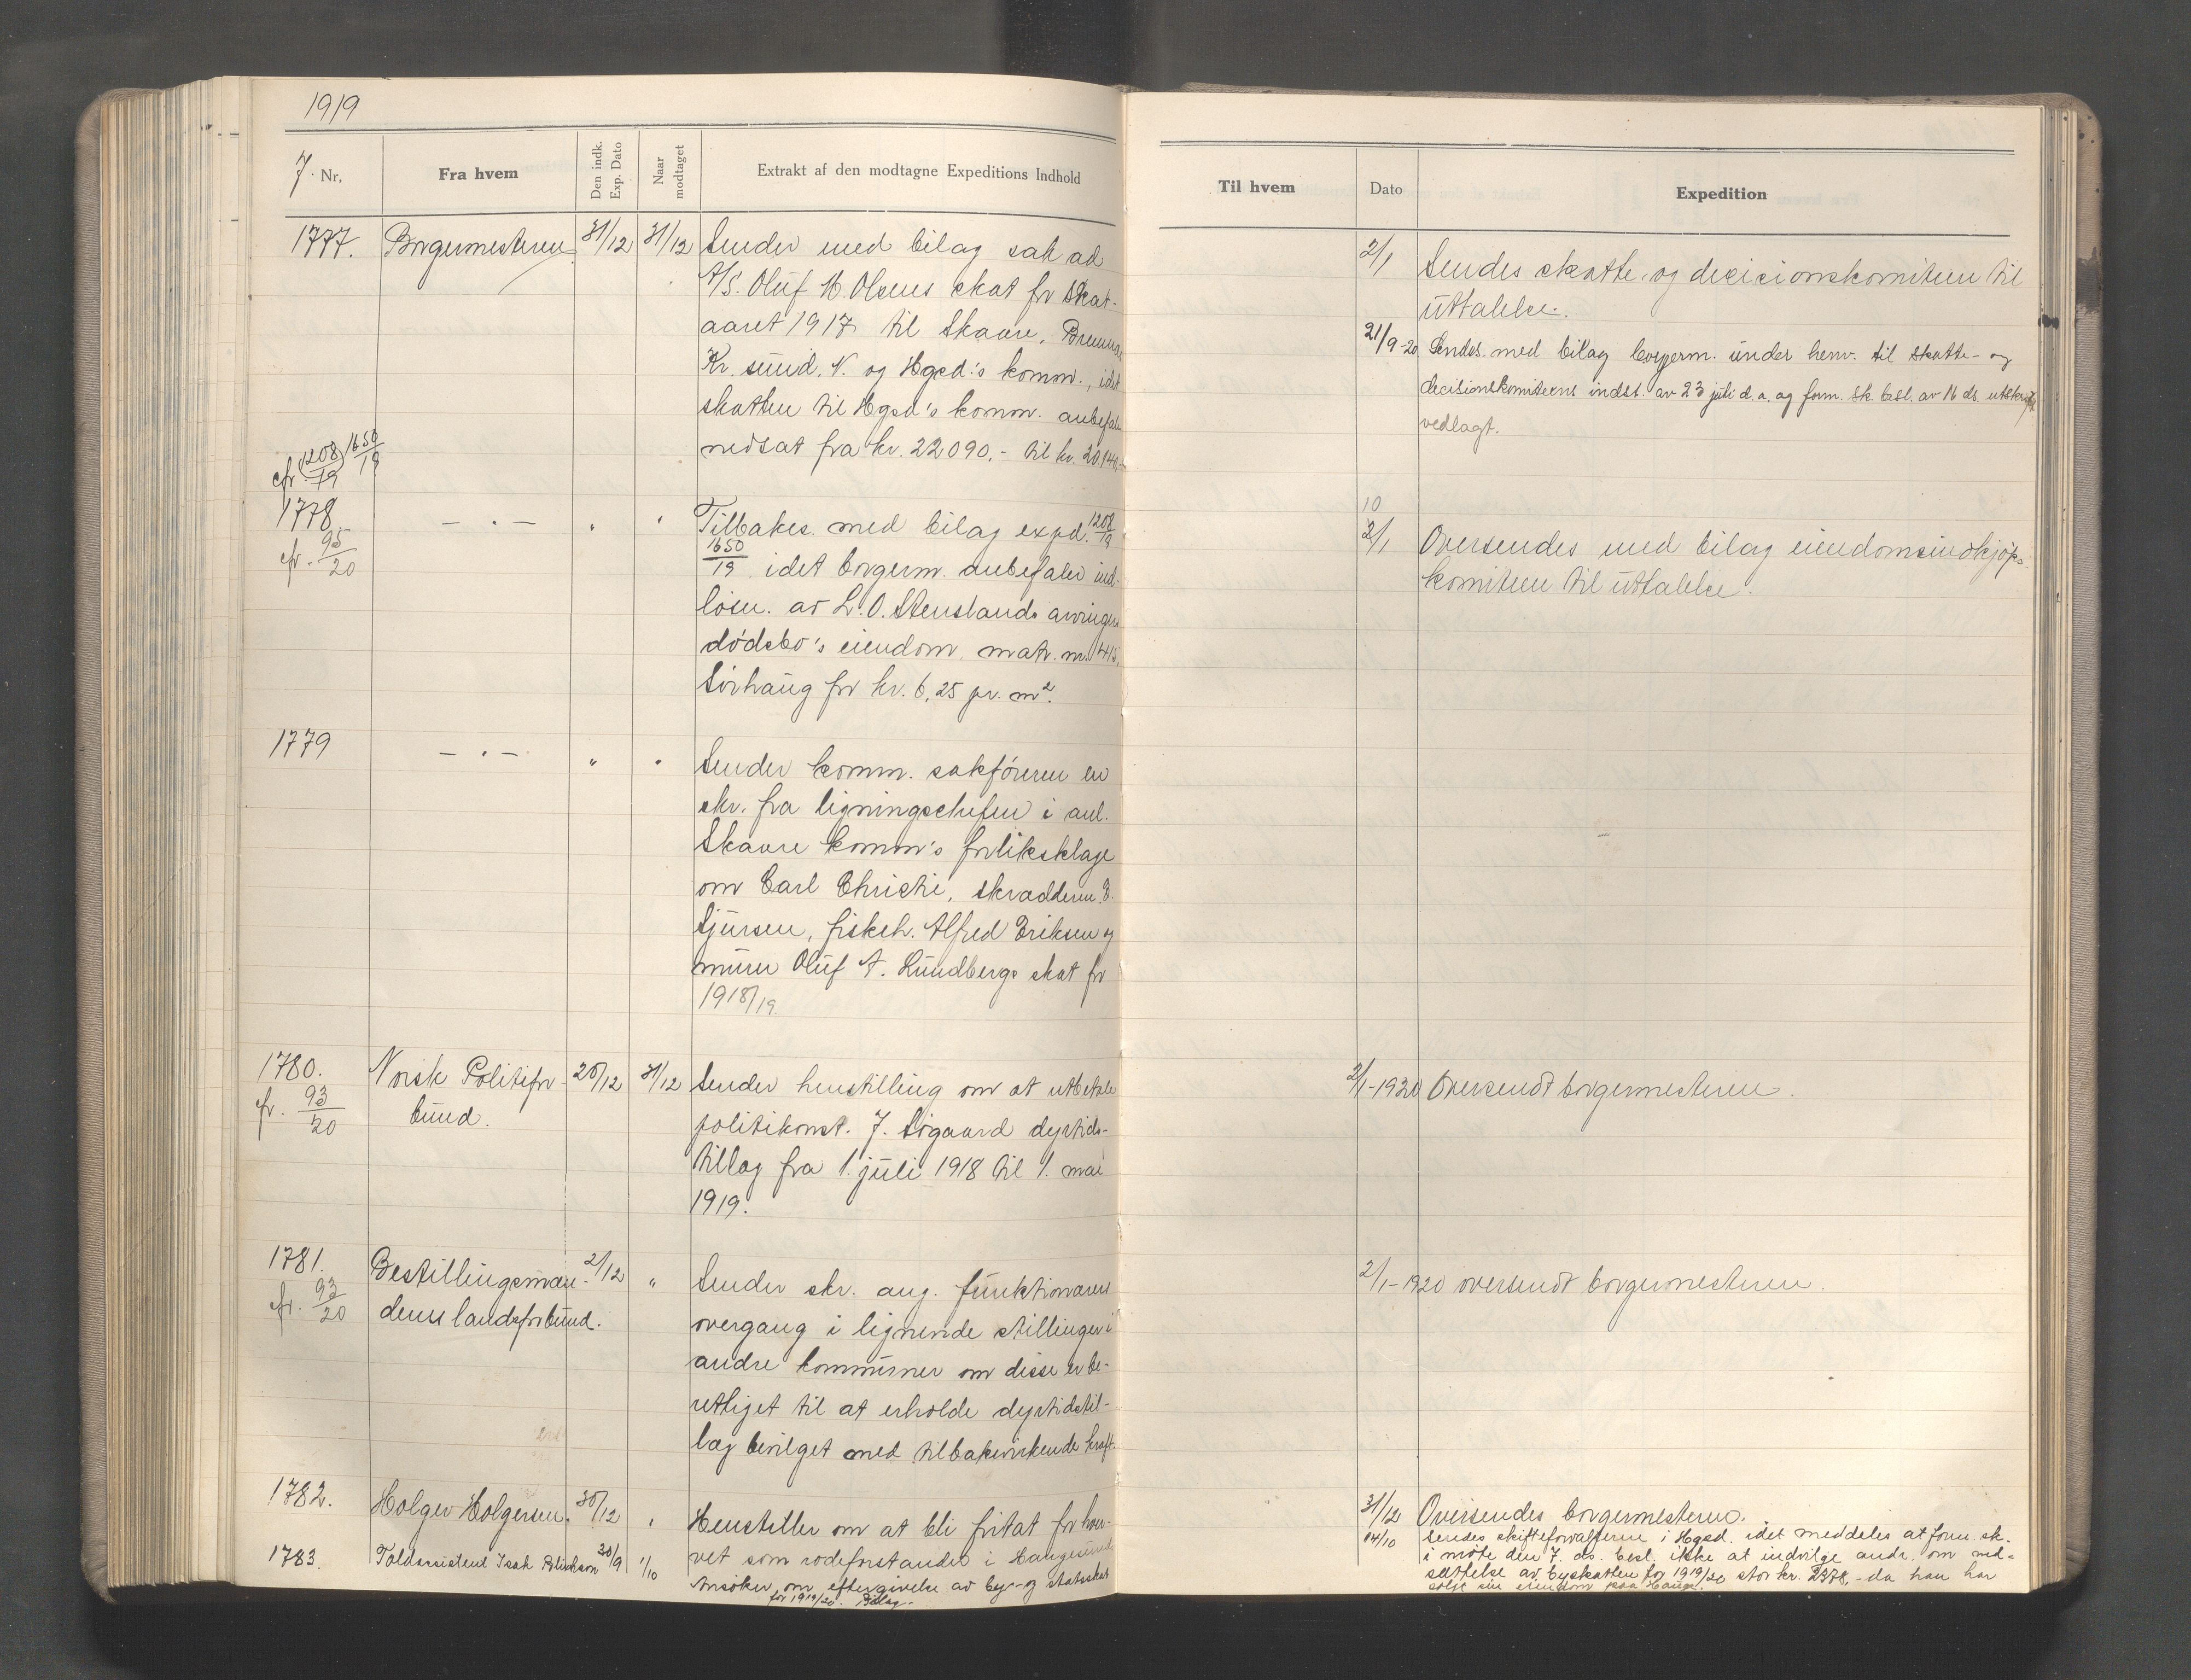 1919
J. Nr.
Fra hvem
Den indk. Exp. Dato
Naar modtaget
Extrakt af den modtagne Expeditions Indhold
1777. Borgermesteren 31/12 31/12 Sender med bilag sak ad
A/S. Oluf H. Olsens skat for skat-
aaret 1917 til Skaare,
Kr. sund. N. og Hgsd's komm., idet
skatten til Hgsd's komm. anbefales
nedsat fra kr. 22090.- til kr.
cfr. (1208/19) 1650/19
1778. — . — " " Tilbakes. med bilag expd. 1208/19
cfr. 95/20
1650/19 idet borgerm. anbefaler ind-
løsn. av L. O. Stenslands arvinger
dødsbo's eiendom matr. nr. 415,
Sørhaug for kr. 6,25 pr. m².
1779 — . — " " Sender komm. sakføreren en
skr. fra ligningschefen i anl.
Skaare komm's forliksklage
om Carl Christie, skrædderen
Sjursen, fiskeh. Alfred Eriksen og
murer Oluf A. Lundbergs skat for
1918/19
1780. Norsk Politifor- 20/12 31/12 Sender henstilling om at utbetale
cfr. 93/20 bund. politikonst. J. Søgaard dyrtids-
tillæg fra 1. juli 1918 til 1. mai
1919.
1781. Bestillingsmæn- 2/12 " Sender skr. ang. funktionærers
cfr. 93/20 denes landsforbund. overgang i lignende stillinger i
andre kommuner om disse er be-
rettiget til at erholde dyrtidstil-
læg bevilget med tilbakevirkende kraft.
1782. Holger Holgersen. 30/12 " Henstiller om at bli fritat for hver-
vet som rodeforstander i Haugesund
1783. Toldassistent Isak 30/9 1/10 Ansøker om eftergivelse av by- og statsskat
for 1919/20. Bilag.
Til hvem
Dato
Expedition
2/1 Sendes skatte- og decisionskomiteen til
uttalelse.
21/9-20 Sendes med bilag borgerm. under henv. til skatte- og
decisionskomiteens indst. av 23 juli d.a. og form. sk. besl. av 16 ds. utskrift
vedlagt.
10
2/1 Oversendes med bilag eiendomsindkjøps-
komiteen til uttalelse.
2/1-1920 Oversendt borgermesteren.
2/1-1920 oversendt borgermesteren.
31/12 Oversendes borgermesteren.
04/10 Sendes skifteforvalteren i Hgsd. idet meddeles at form. sk.
i møte den 7. ds. besl. ikke at indvilge andr. om ned-
sættelse av byskatten for 1919/20 stor kr. 2378,- da han har
solgt sin eiendom paa Hauge.